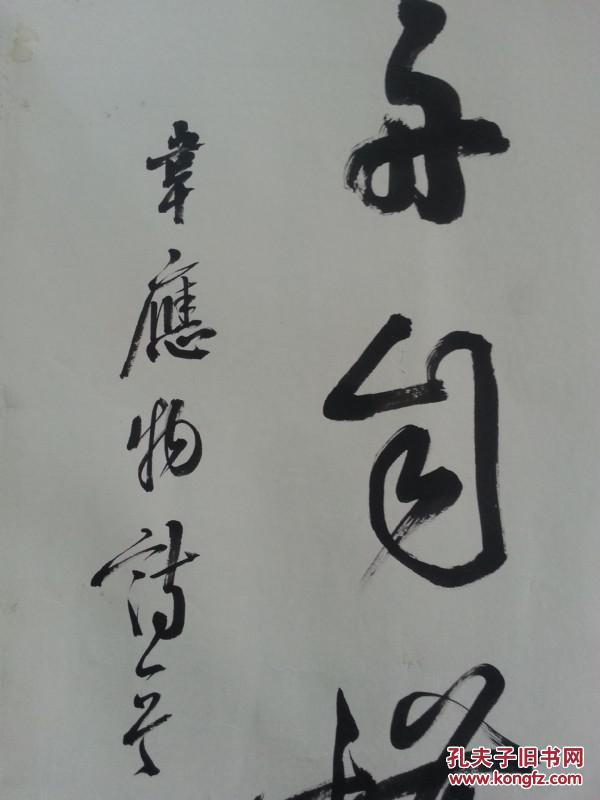 舟自
韋應物詩一首
孔夫子旧书网
www.kongfz.com